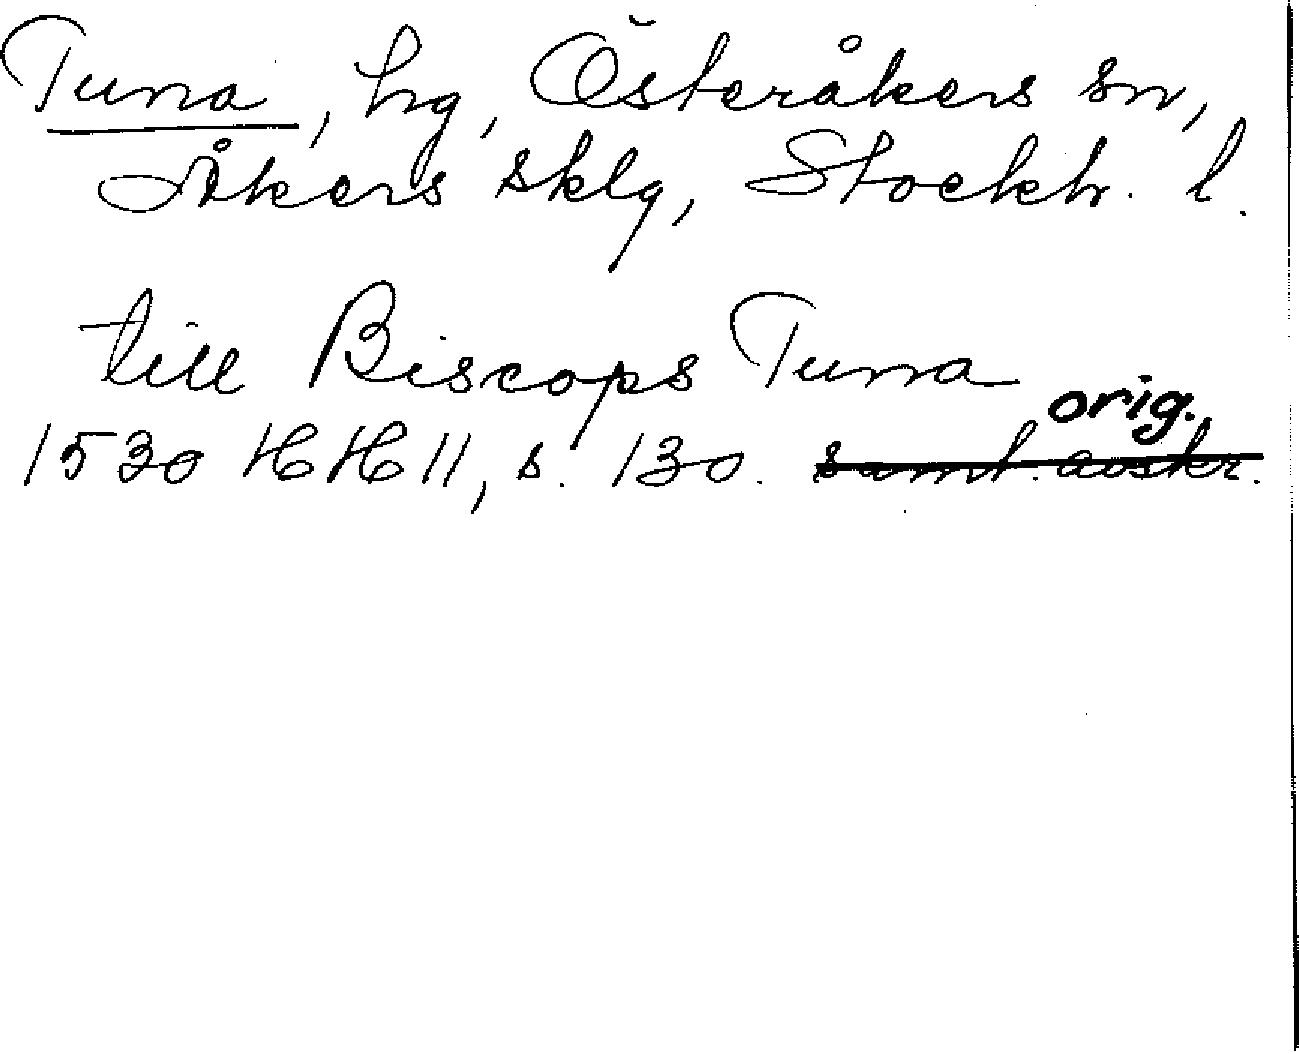 Tuna, hg, Österåkers sn,
Åkers sklg, Stockh. l.
till Biscops Tuna
orig.
1530 HH 11, s. 130. samt. avskr.